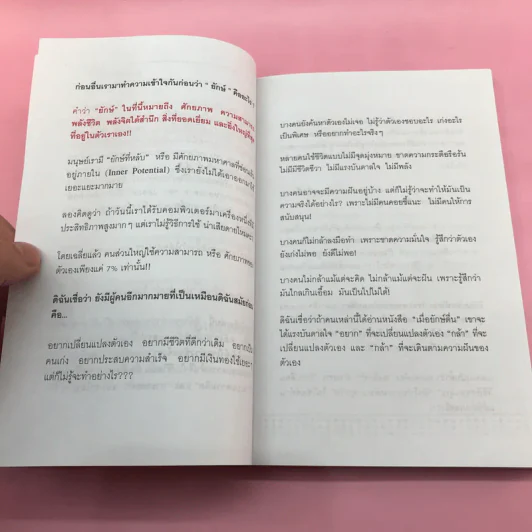 ก่อนอื่นเรามาทำความเข้าใจกันก่อนว่า " ยักษ์ " คืออะไร ?
คำว่า "ยักษ์" ในที่นี้หมายถึง ศักยภาพ ความสามารถ
พลังชีวิต พลังจิตใต้สำนึก สิ่งที่ยอดเยี่ยม และยิ่งใหญ่ที่สุด
ที่อยู่ในตัวเราเอง!!
มนุษย์เรามี "ยักษ์ที่หลับ" หรือ มีศักยภาพมหาศาลที่ซ่อนเร้น
อยู่ภายใน (Inner Potential) ซึ่งเรายังไม่ได้เอาออกมาใช้
เยอะแยะมากมาย
ลองคิดดูว่า ถ้าวันนี้เราได้รับคอมพิวเตอร์มาเครื่องหนึ่งที่มี
ประสิทธิภาพสูงมากๆ แต่เราไม่รู้วิธีการใช้ น่าเสียดายไหมคะ?
โดยเฉลี่ยแล้ว คนส่วนใหญ่ใช้ความสามารถ หรือ ศักยภาพของ
ตัวเองเพียงแค่ 7% เท่านั้น!!
ดิฉันเชื่อว่า ยังมีผู้คนอีกมากมายที่เป็นเหมือนดิฉันสมัยก่อน
คือ...
อยากเปลี่ยนแปลงตัวเอง อยากมีชีวิตที่ดีกว่าเดิม อยากเป็น
คนเก่ง อยากประสบความสำเร็จ อยากมีเงินทองใช้เยอะๆ
แต่ก็ไม่รู้จะทำอย่างไร???
บางคนยังค้นหาตัวเองไม่เจอ ไม่รู้ว่าตัวเองชอบอะไร เก่งอะไร
เป็นพิเศษ หรืออยากทำอะไรจริงๆ
หลายคนใช้ชีวิตแบบไม่มีจุดมุ่งหมาย ขาดความกระตือรือร้น
ไม่มีมีชีวิตชีวา ไม่มีแรงบันดาลใจ ไม่มีพลัง
บางคนอาจจะมีความฝันอยู่บ้าง แต่ก็ไม่รู้ว่าจะทำให้มันเป็น
ความจริงได้อย่างไร? เพราะไม่มีคนคอยชี้แนะ ไม่มีคนให้การ
สนับสนุน!
บางคนก็ไม่กล้าลงมือทำ เพราะขาดความมั่นใจ รู้สึกว่าตัวเอง
ยังเก่งไม่พอ ยังดีไม่พอ!
บางคนไม่กล้าแม้แต่จะคิด ไม่กล้าแม้แต่จะฝัน เพราะรู้สึกว่า
มันไกลเกินเอื้อม มันเป็นไปไม่ได้!
ดิฉันเชื่อว่าถ้าคนเหล่านี้ได้อ่านหนังสือ "เมื่อยักษ์ตื่น" เขาจะ
ได้แรงบันดาลใจ "อยาก" ที่จะเปลี่ยนแปลงตัวเอง "กล้า" ที่จะ
เปลี่ยนแปลงตัวเอง และ "กล้า" ที่จะเดินตามความฝันของ
ตัวเอง